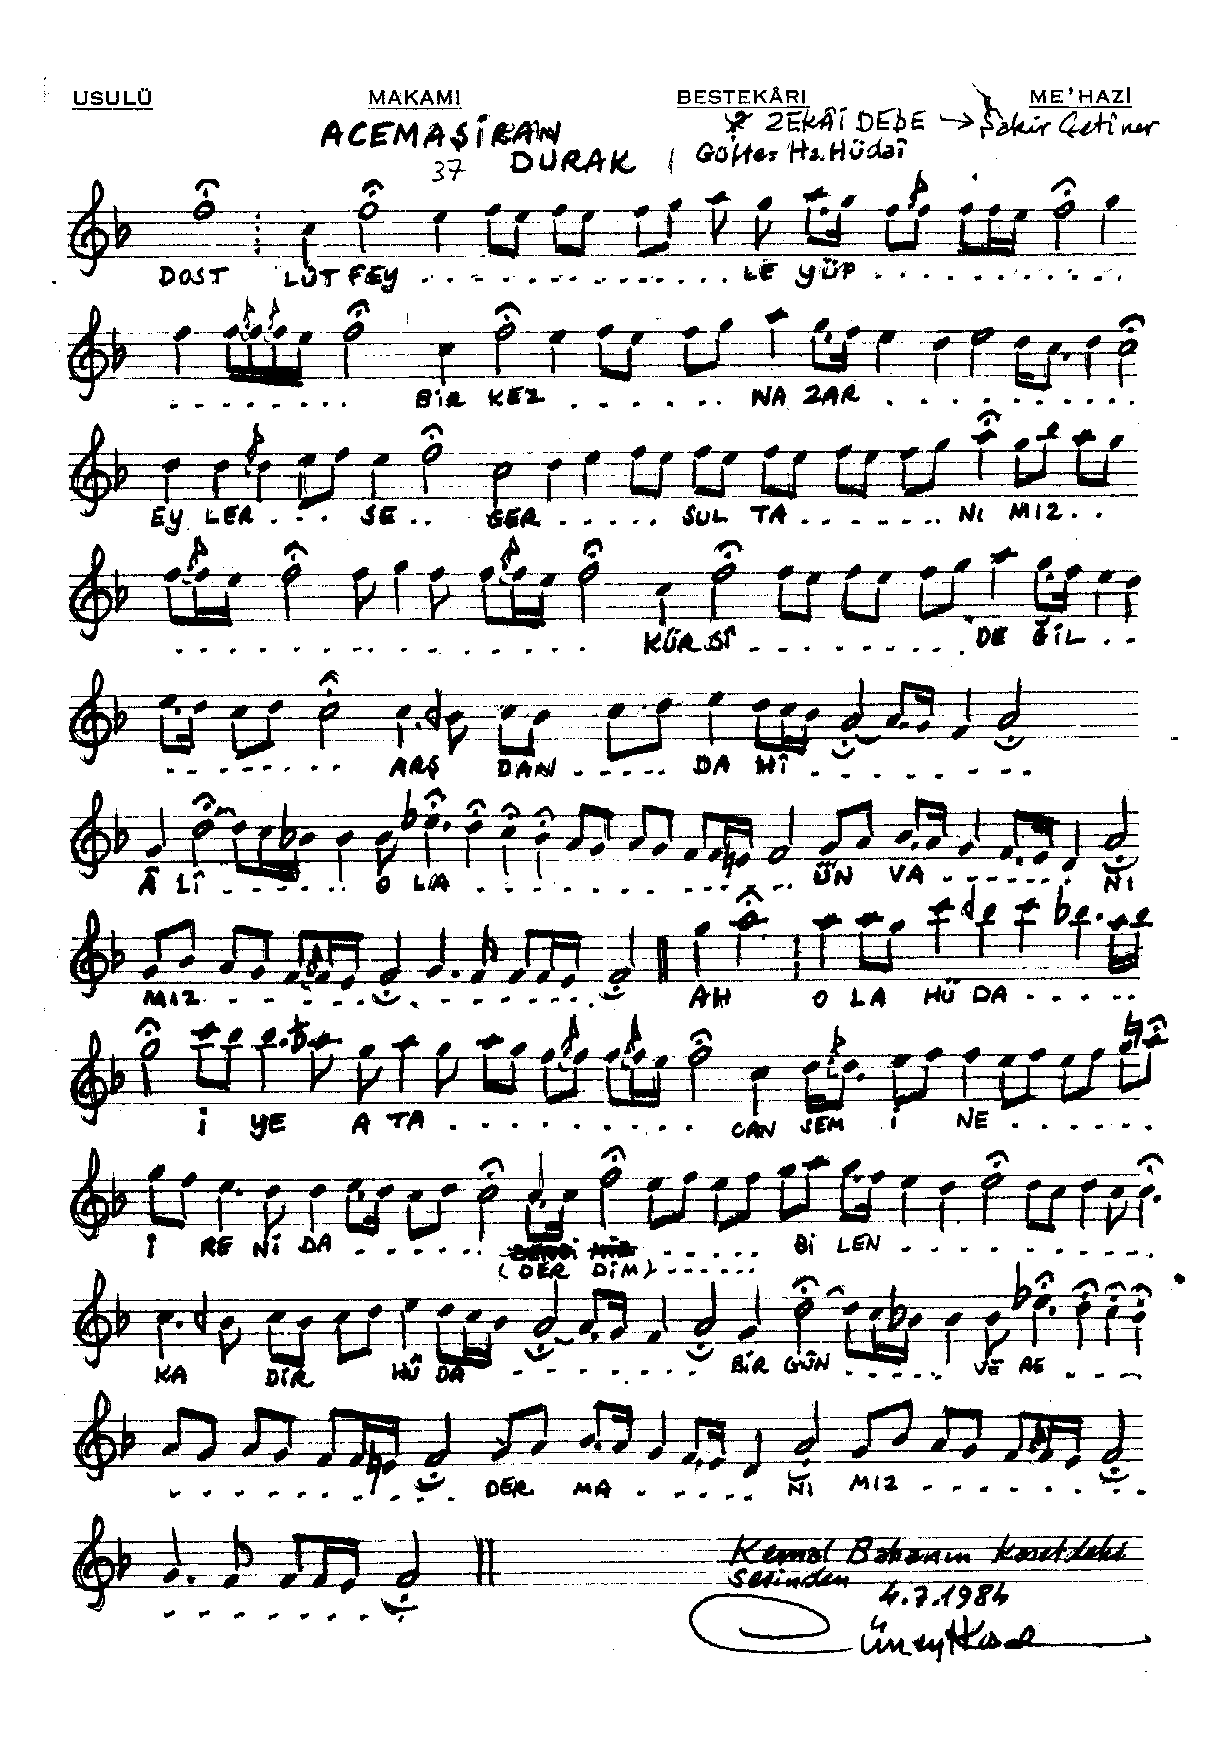 USULÜ MAKAMI BESTEKÂRI ME'HAZİ
ACEMAŞİRAN ZEKÂÎ DEDE → Şakir Çetiner
37 DURAK Güfte: Hz. Hüdaî
DOST LÛT FEY . . . . . . . . . . . . . LE YÜP . . . . . . . . .
. . . . . . . BİR KEZ . . . . . . NA ZAR . . . . . . . . .
EY LER . . . SE . . GER . . . . . SUL TA . . . . . . . NI MIZ . .
. . . . . . . . . . . . . . . . KÜR SÎ . . . . . . . . DE ĞİL . .
. . . . . . . ARŞ DAN . . . . DA HÎ . . . . . . .
Â LÎ . . . . . . O LA . . . . . . . . . . . ÜN VA . . . . . . NI
MIZ . . . . . . . . . . . . AH O LA HÜ DA . . . . . .
İ YE A TA . . . . . . . . . CAN SEM İ NE . . . . . .
İ RE Nİ DA . . . . . . . . . . . . Bİ LEN . . . . . . . . .
(DER DİM) . . . . . .
KA DİR HÜ DA . . . . . . . BİR GÜN . . . . . VE RE . . . .
. . . . . . . . . DER MA . . . . . NI MIZ . . . . . . .
. . . . . . . .
Kemal Babanın kasetdeki
sesinden
4.7.1984